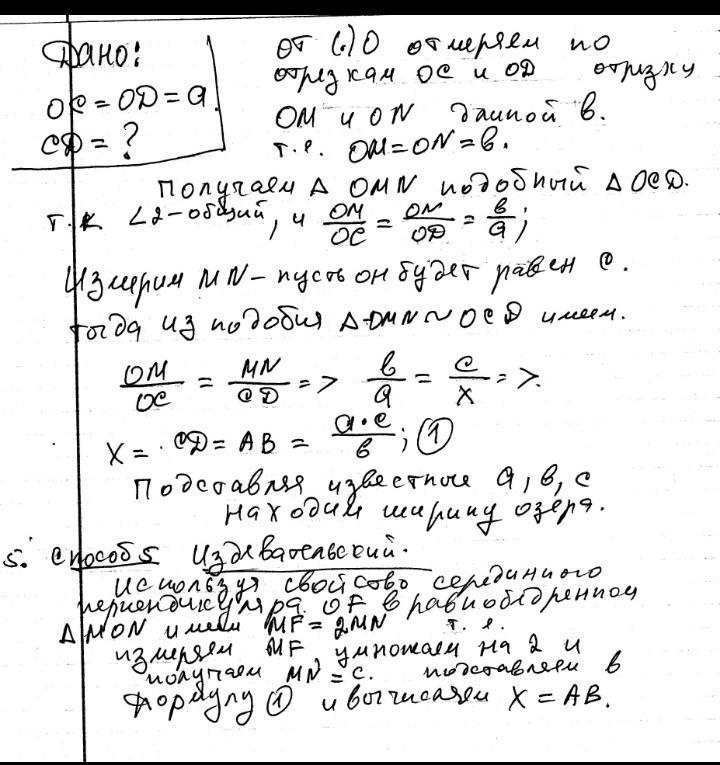 Дано:
OC = OD = a.
CD = ?
от (.) O отмеряем по
отрезкам OC и OD отрезки
OM и ON длиной в.
т.е. OM = ON = в.
Получаем Δ OMN подобный Δ OCD.
т.к ∠2 - общий, и OM/OC = ON/OD = в/a;
Измерим MN - пусть он будет равен c.
тогда из подобия Δ OMN ~ OCD имеем.
OM/OC = MN/CD => в/a = c/x =>.
X = CD = AB = a·c/в; ①
Подставляя известные a, в, c
находим ширину озера.
5. Способ 5 Издевательский.
Используя свойство серединного
перпендикуляра OF в равнобедренном
Δ MON имеем MF = 2MN т.е.
измеряем MF умножаем на 2 и
получаем MN = c. подставляем в
формулу ① и вычисляем X = AB.